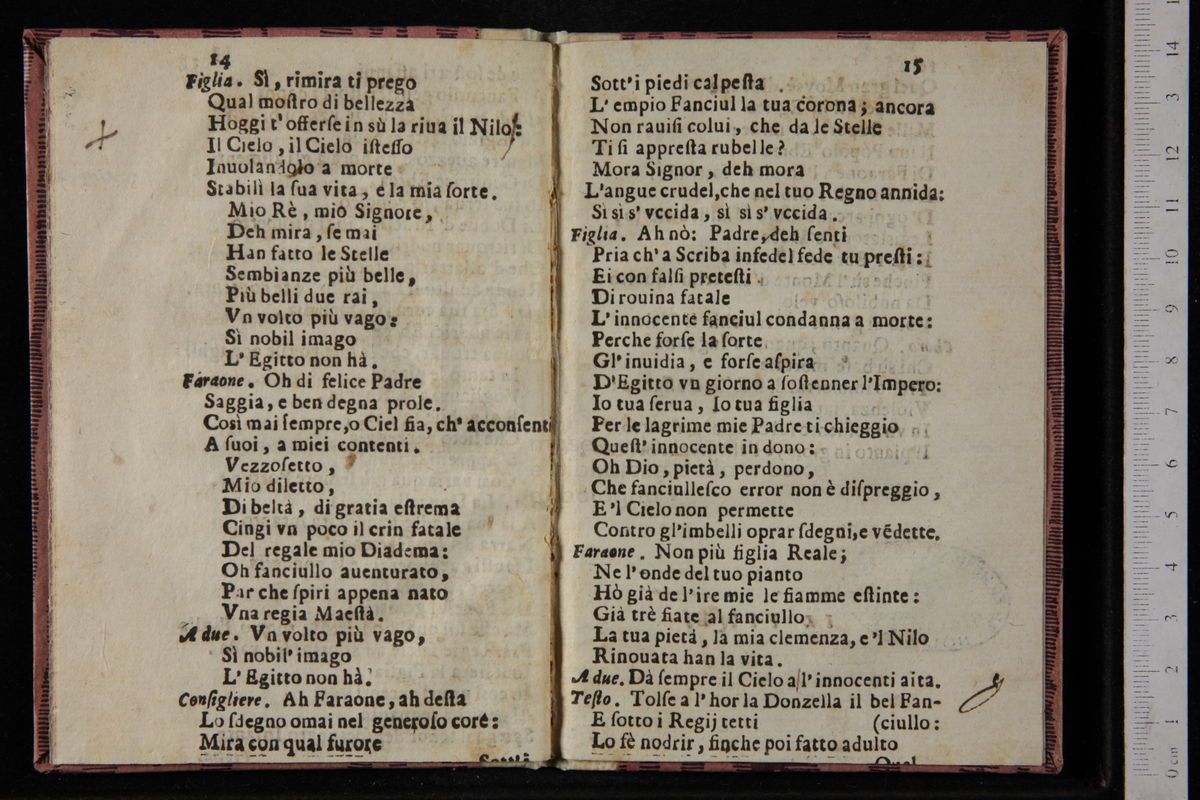 14
Figlia. Sì, rimira ti prego
Qual moſtro di bellezza
Hoggi t'offerſe in sù la riua il Nilo:
Il Cielo, il Cielo iſteſſo
Inuolandolo a morte
Stabilì la ſua vita, e la mia ſorte.
Mio Rè, mio Signore,
Deh mira, ſe mai
Han fatto le Stelle
Sembianze più belle,
Più belli due rai,
Vn volto più vago:
Sì nobil imago
L'Egitto non hà.
Faraone. Oh di felice Padre
Saggia, e ben degna prole.
Così mai ſempre, o Ciel fia, ch'acconſenti
A ſuoi, a miei contenti.
Vezzoſetto,
Mio diletto,
Di beltà, di gratia eſtrema
Cingi vn poco il crin fatale
Del regale mio Diadema:
Oh fanciullo auenturato,
Par che ſpiri appena nato
Vna regia Maeſtà.
A due. Vn volto più vago,
Sì nobil'imago
L'Egitto non hà.
Conſigliere. Ah Faraone, ah deſta
Lo ſdegno omai nel generoſo core:
Mira con qual furore
Sott'i
15
Sott'i piedi calpeſta
L'empio Fanciul la tua corona; ancora
Non rauiſi colui, che da le Stelle
Ti ſi appreſta rubelle?
Mora Signor, deh mora
L'angue crudel, che nel tuo Regno annida:
Si sì s'vccida, sì sì s'vccida.
Figlia. Ah nò: Padre, deh ſenti
Pria ch'a Scriba infedel fede tu preſti:
Ei con falſi preteſti
Di rouina fatale
L'innocente fanciul condanna a morte:
Perche forſe la ſorte
Gl'inuidia, e forſe aſpira
D'Egitto vn giorno a ſoſtenner l'Impero:
Io tua ſerua, Io tua figlia
Per le lagrime mie Padre ti chieggio
Queſt'innocente in dono:
Oh Dio, pietà, perdono,
Che fanciulleſco error non è diſpreggio,
E'l Cielo non permette
Contro gl'imbelli oprar ſdegni, e vẽdette.
Faraone. Non più figlia Reale;
Ne l'onde del tuo pianto
Hò già de l'ire mie le fiamme eſtinte:
Già trè fiate al fanciullo
La tua pietá, la mia clemenza, e'l Nilo
Rinouata han la vita.
A due. Dà ſempre il Cielo a l'innocenti aita.
Teſto. Tolſe a l'hor la Donzella il bel Fan-
E ſotto i Regij tetti (ciullo:
Lo fè nodrir, finche poi fatto adulto
Qual